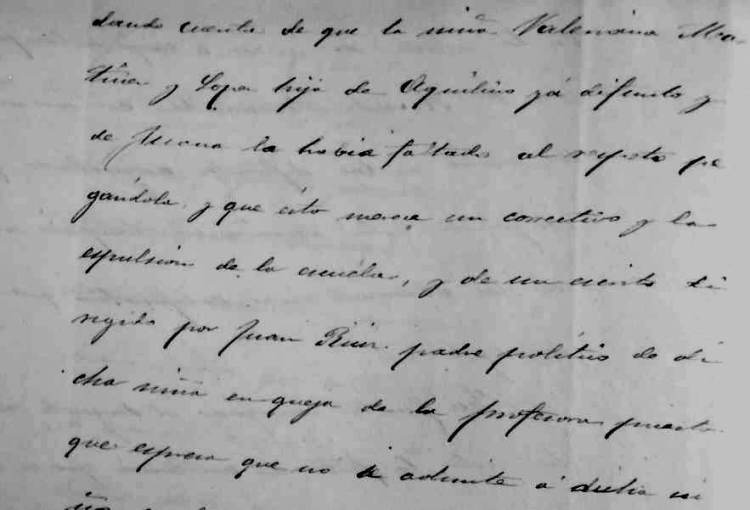 dando cuenta de que la niña Valeriana Mar
tinez y Lopez hija de Aquilino yá difunto y
de Juana la habia faltado al respeto pe
gandola, y que esto merece un correctivo y la
espulsion de la escuela, y de un escrito di
rigido por Juan Ruiz padre politico de di
cha niña en queja de la profesora puesto
que espresa que no se admite á dicha ni
ña